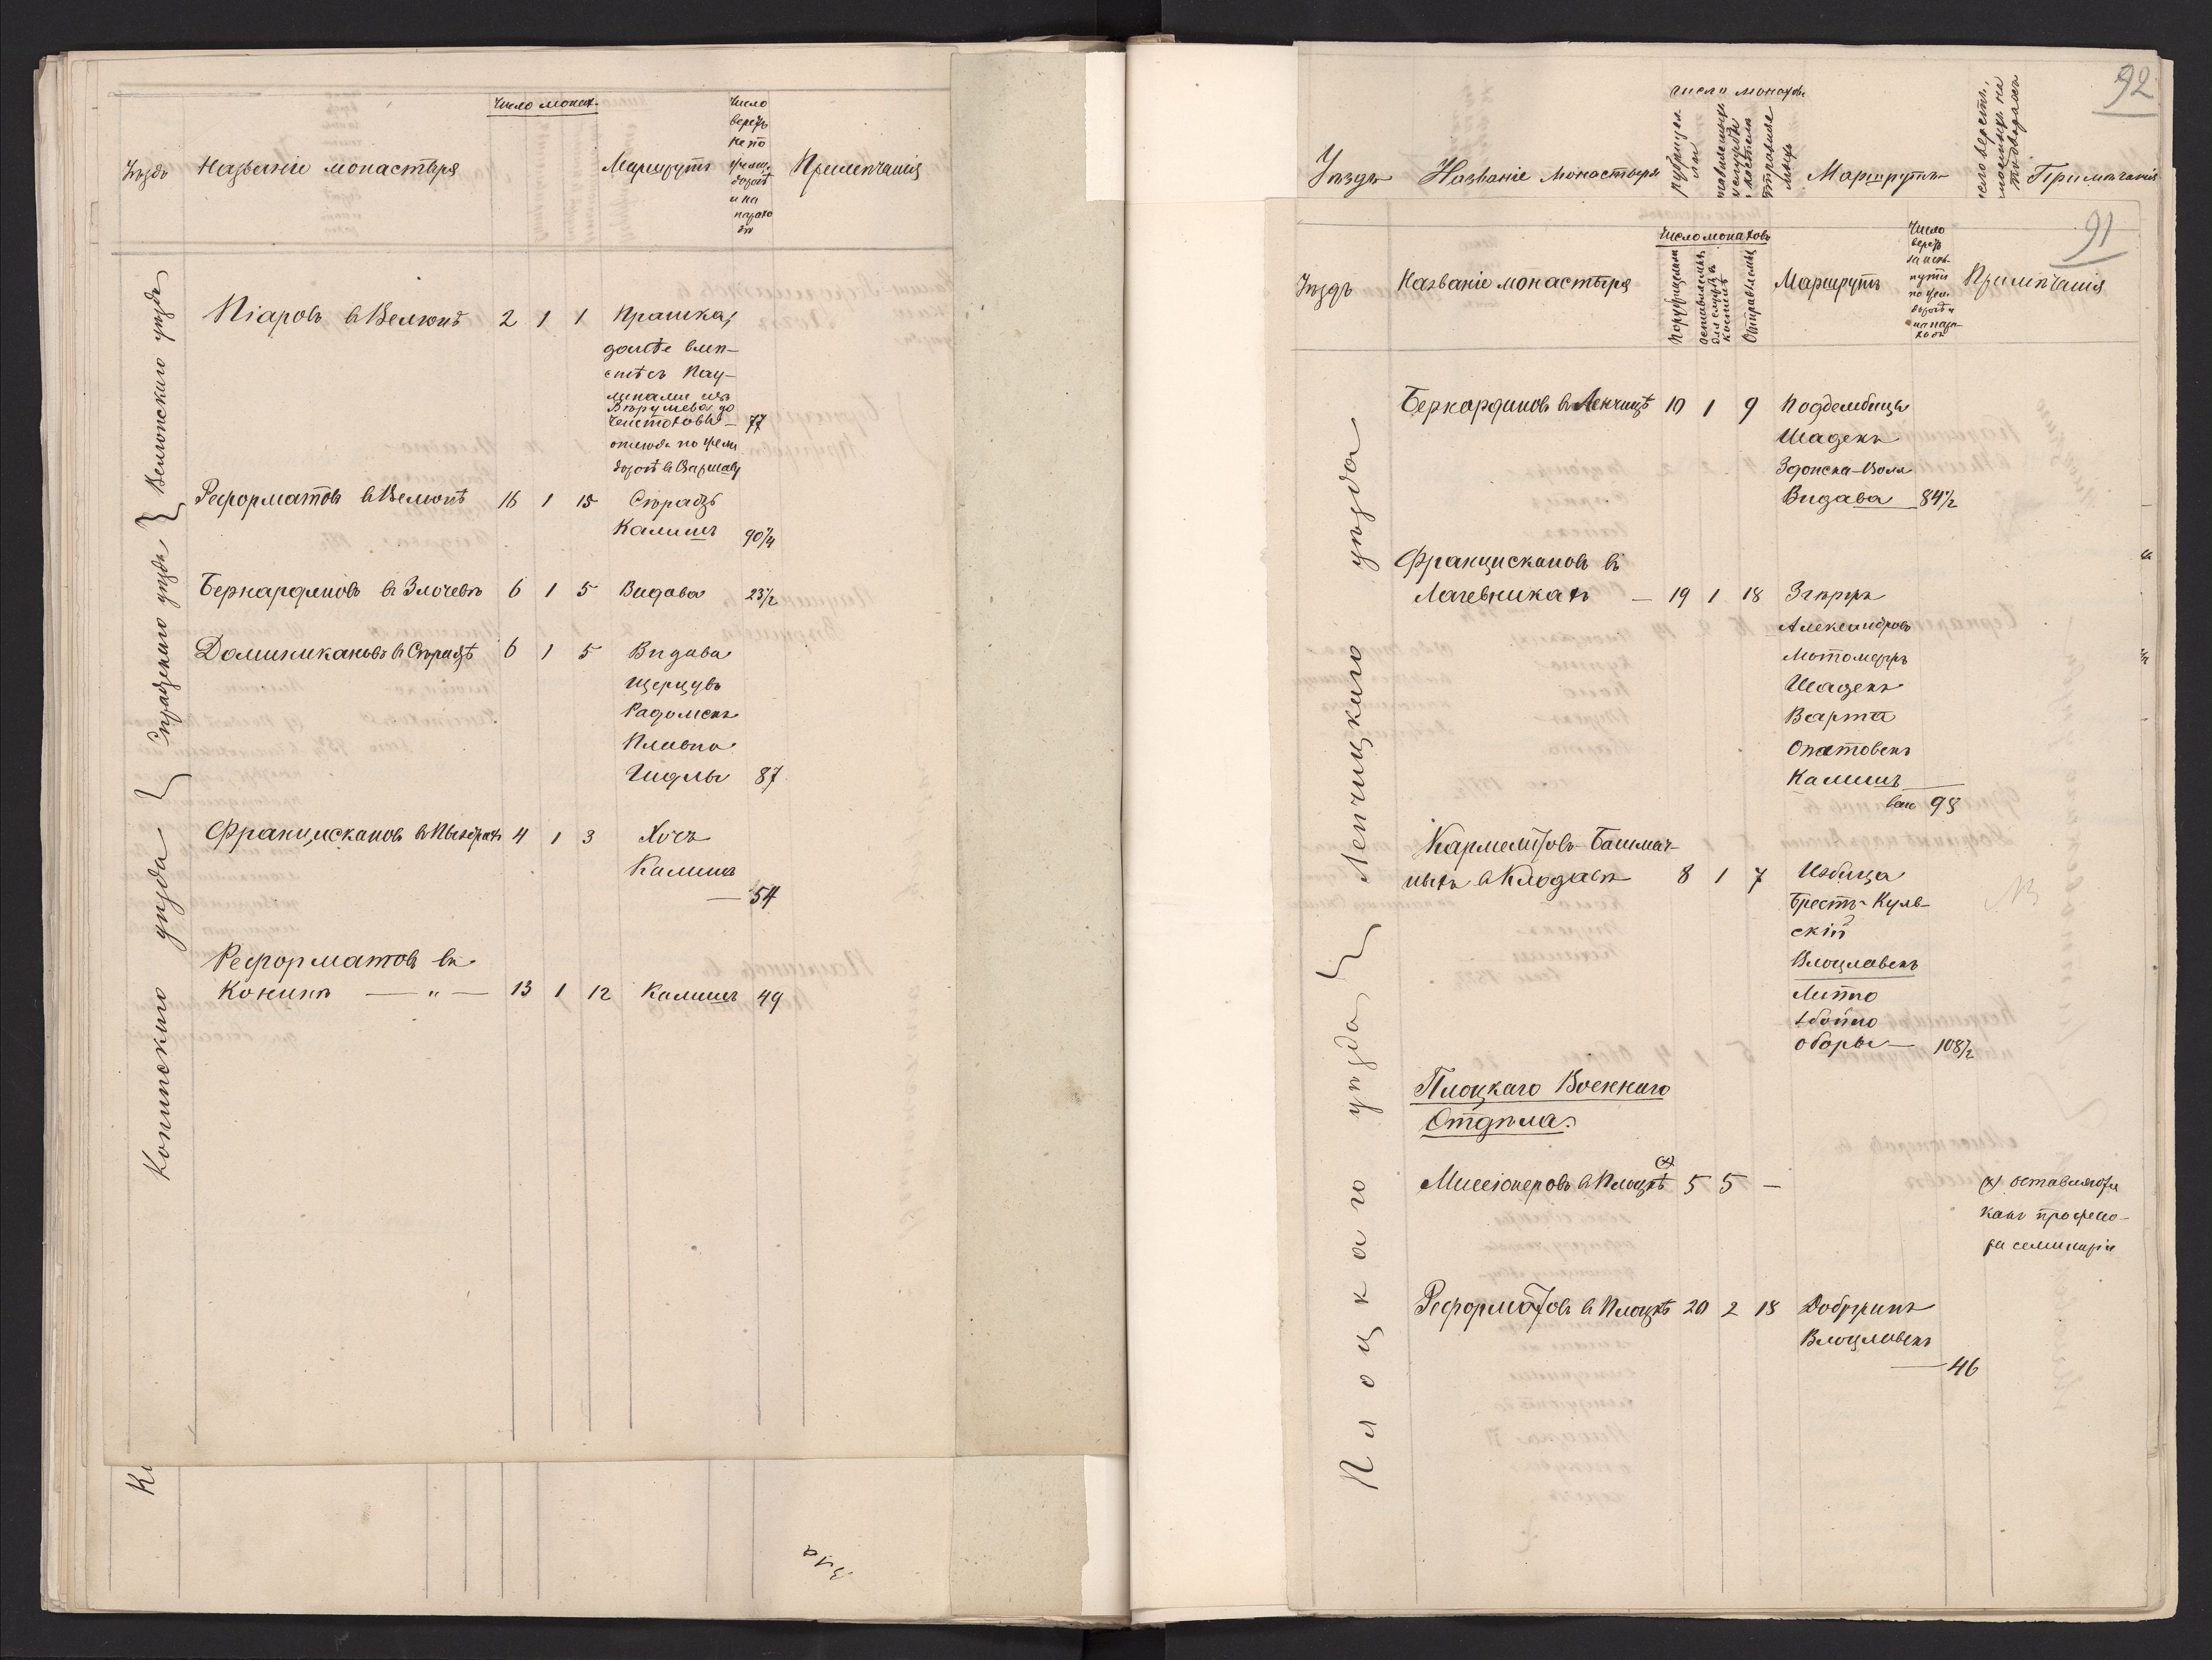 Число монах.
Уѣздъ Названіе монастыря Маршрутъ Число верстъ не по желѣз. дорогѣ и на парахо дѣ Примѣчанія
Велюнскаго уѣзда
Піаровъ в Велюнѣ 2 1 1 Прашка,
далѣе вмѣ-
стѣ съ Пау-
линами изъ
Вѣрушева до
Ченстохова — 77
оттуда по желѣз.
дорогѣ в Варшаву
Реформатовъ в Велюнѣ 16 1 15 Сѣрадзь
Калишъ 90 1/4
Сѣрадзскаго уѣзда
Бернардиновъ в Злочевѣ 6 1 5 Видава 23 1/2
Доминикановъ в Сѣрадзѣ 6 1 5 Видава
Щерцувъ
Радомскъ
Плавно
Гидлы 87
Конинскаго уѣзда
Францискановъ в Пыздрахъ 4 1 3 Хочъ
Калишъ
— 54
Реформатовъ въ
Конинѣ — " — 13 1 12 Калишъ 49
92
число монаховъ
Уѣздъ Названіе монастыря Маршрутъ Примѣчанія
91
Число монаховъ
Уѣздъ Названіе монастыря По рубрицеламъ Оставляемыхъ для служб. в костелѣ Отправляемыхъ Маршрутъ Примѣчанія
Ленчицкаго уѣзда
Бернардиновъ в Ленчицѣ 10 1 9 Поддембицы
Шадекъ
Здонска-Воля
Видава — 84 1/2
Францискановъ въ
Лагевникахъ — 19 1 18 Згержъ
Александровъ
Лютомерзъ
Шадекъ
Варта
Опатовекъ
Калишъ —
98
Кармелитовъ-Башмач-
ныхъ в Клодавѣ 8 1 7 Избица
Брестъ-Куяв-
скій
Влоцлавекъ
Липно
Збойно
Оборы — 108 1/2
Плоцкаго Военнаго
Отдѣла.
Плоцкаго уѣзда
Миссіонеровъ в Плоцкѣ (х) 5 5 — (х) оставляются
какъ профессо-
ра семинаріи
Реформатовъ в Плоцкѣ 20 2 18 Добржинъ
Влоцлавекъ
— 46